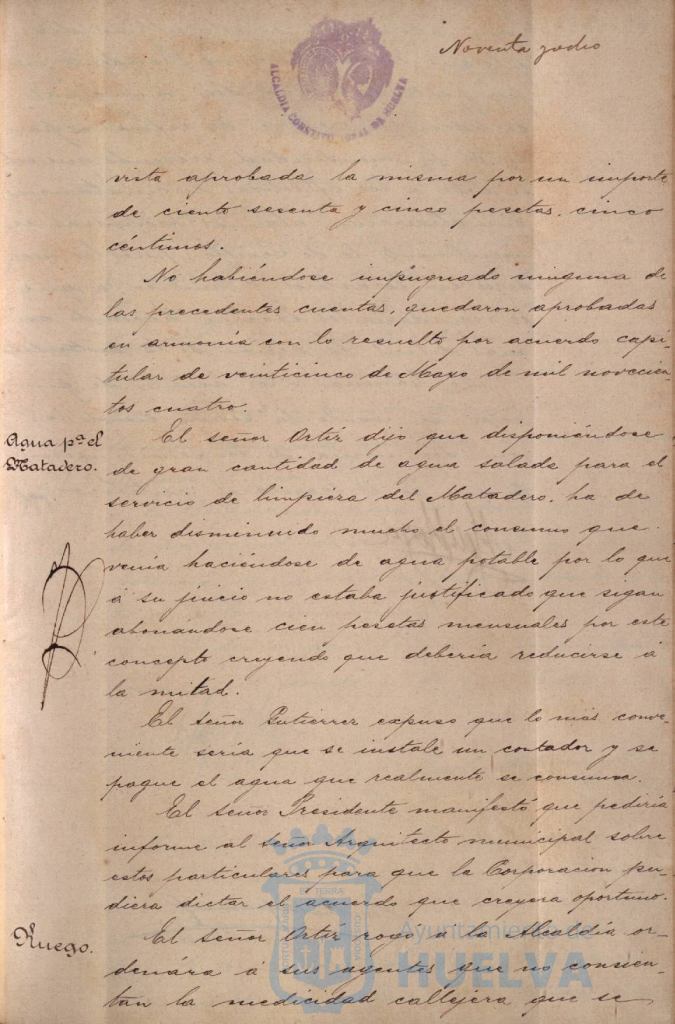 Noventa y ocho
ALCALDÍA CONSTITUCIONAL DE HUELVA
vista aprobada la misma por un importe
de ciento sesenta y cinco pesetas, cinco
céntimos.
No habiéndose impugnado ninguna de
las precedentes cuentas, quedaron aprobadas
en armonía con lo resuelto por acuerdo capi-
tular de veinticinco de Mayo de mil novecien-
tos cuatro.
Agua pª el
Matadero.
El señor Ortiz dijo que disponiéndose
de gran cantidad de agua salada para el
servicio de limpieza del Matadero, ha de
haber disminuido mucho el consumo que
venía haciéndose de agua potable por lo que
á su juicio no estaba justificado que sigan
abonándose cien pesetas mensuales por este
concepto creyendo que debería reducirse á
la mitad.
El señor Gutierrez expuso que lo más conve-
niente sería que se instale un contador y se
pague el agua que realmente se consuma.
El señor Presidente manifestó que pediría
informe al señor Arquitecto municipal sobre
estos particulares para que la Corporacion pu-
diera dictar el acuerdo que creyera oportuno.
Ruego.
El señor Ortiz rogó á la Alcaldía or-
denára á sus agentes que no consien-
tan la medicidad callejera que se
Ayuntamiento
HUELVA